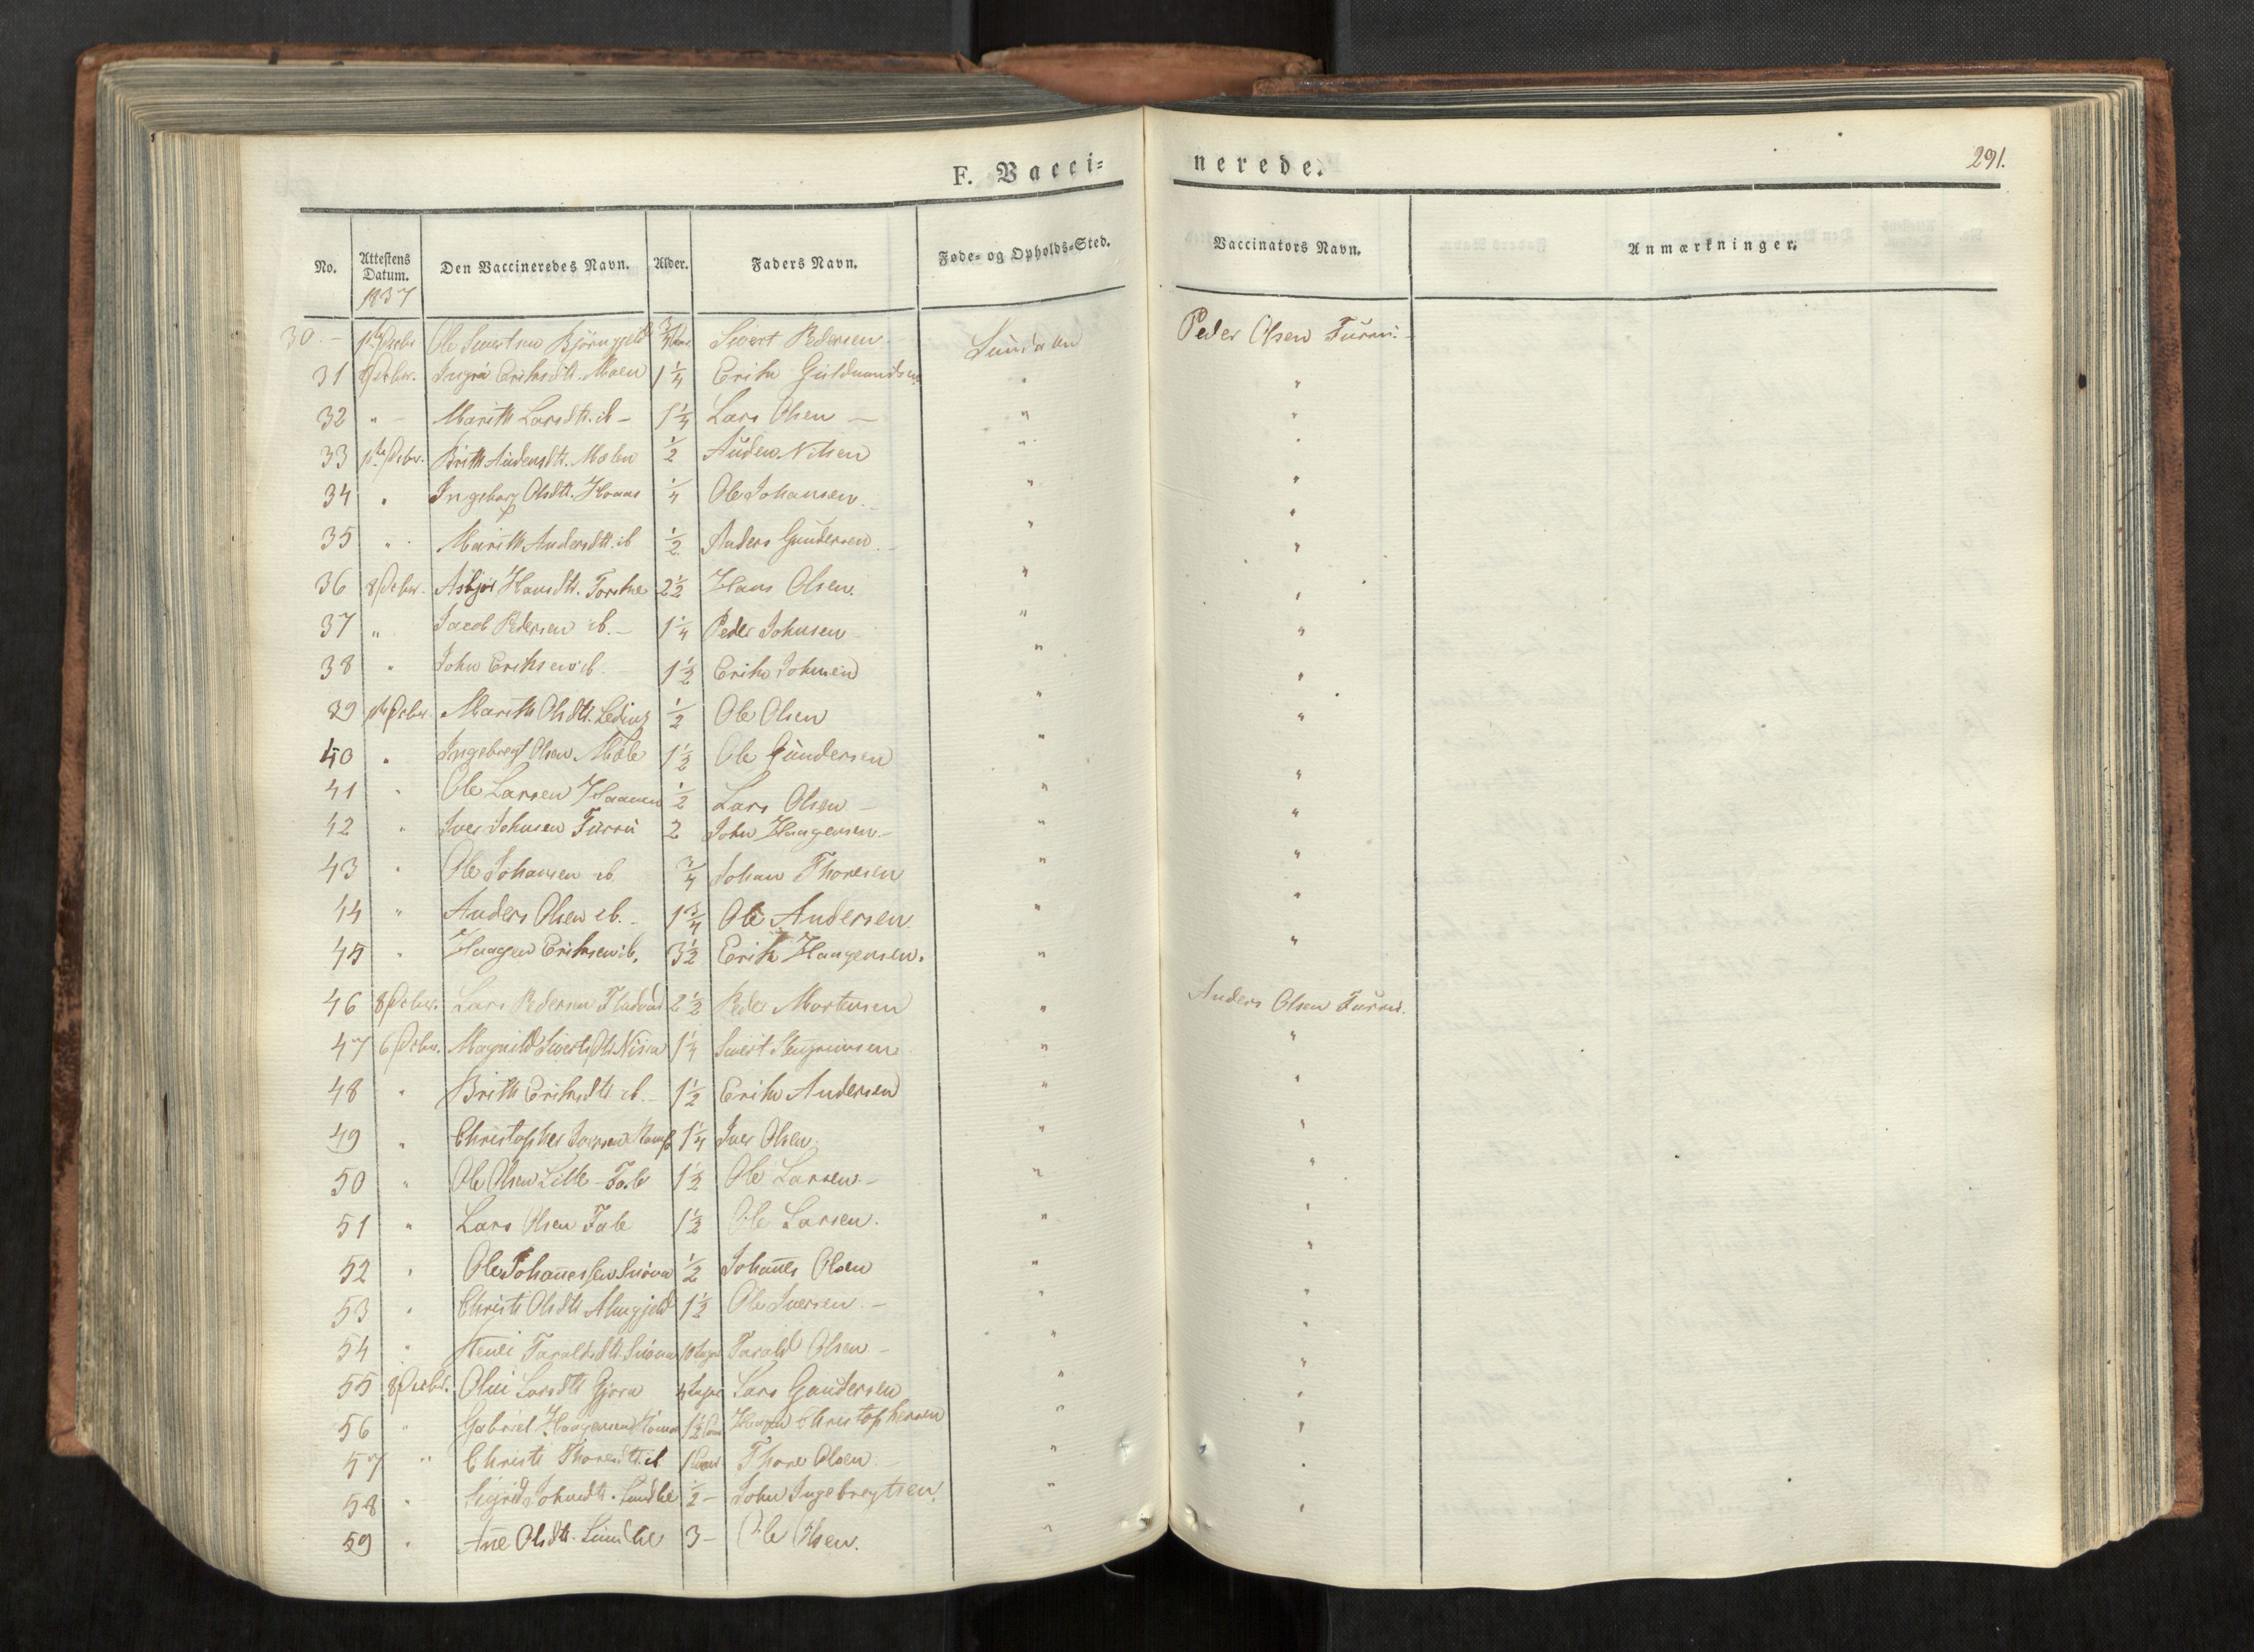 F. Vacci=
nerede.
291.
No. Attestens Datum. Den Vaccineredes Navn. Alder. Faders Navn. Føde= og Opholds=Sted. Vaccinators Navn. Anmærkninger.
1837
30. 1ste Octbr Ole Sivertsen 3/4 Sivert Pedersen Sundalen Peder Olsen Furru.
31 Octbr. Eriksdtr. Moen 1 1/4 Erik " "
32 " Marith Larsdtr. ib 1 1/4 Lars Olsen " "
33 1ste Octbr. Brith Audensdtr. Mælen 1/2 Auden Nilsen " "
34 " Ingeborg Olsdtr. Hoaas 1/4 Ole Johansen " "
35 " Marith Andersdtr. ib 1/2 Anders Gundersen " "
36 8 Octbr. Hansdtr. Torske 2 1/2 Hans Olsen. " "
37 " Jacob Pedersen ib. 1 1/4 Peder Johnsen " "
38 " John Eriksen ib. 1 1/2 Erik Johnsen " "
39 1ste Octbr. Marith Olsdtr. 1/2 Ole Olsen " "
40 " Ingebregt Olsen Mæle 1 1/2 Ole Gundersen " "
41 " Ole Larsen 1/2 Lars Olsen " "
42 " Iver Johnsen Furru 2 John Haagensen " "
43 " Ole Johansen ib 3/4 Johan Thoresen " "
44 " Anders Olsen ib. 1 3/4 Ole Andersen " "
45 " Haagen Eriksen ib. 3 1/2 Erik Haagensen. " "
46 8 Octbr. Lars Pedersen 2 1/2 Peder Mortensen " Anders Olsen Furru.
47 6 Octbr. Magnild Sivertsdtr. 1 1/4 Sivert " "
48 " Brith Eriksdtr. ib. 1 1/2 Erik Andersen " "
49 " Christopher Iversen 1 1/4 Iver Olsen " "
50 " Ole Olsen Lille-Fale 1 1/2 Ole Larsen " "
51 " Lars Olsen Fale 1 1/2 Ole Larsen. " "
52 " Ole Johanessen Snøva 1/2 Johanes Olsen " "
53 " Christi Olsdtr. 1 1/2 Ole Iversen " "
54 " Faraldsdtr. Snøva 10 Farald Olsen " "
55 8 Octbr. Larsdtr. Gjøra 4 Lars Gundersen " "
56 " Gabriel Haagensen 1 1/2 Haagen Christophersen " "
57 " Christi Thoresdtr. ib 1 Thore Olsen " "
58 " Sigrid Johnsdtr. 1/2 John Ingebregtsen. " "
59 " Ane Olsdtr. 3 Ole Olsen. "